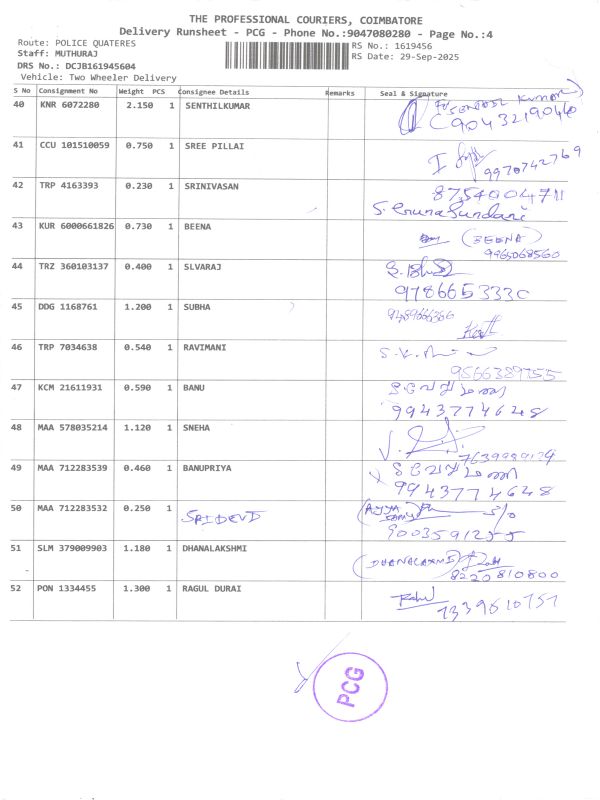 THE PROFESSIONAL COURIERS, COIMBATORE
Delivery Runsheet - PCG - Phone No.:9047080280 - Page No.:4
Route: POLICE QUATERES
RS No.: 1619456
Staff: MUTHURAJ
RS Date: 29-Sep-2025
DRS No.: DCJB161945604
Vehicle: Two Wheeler Delivery
S No Consignment No Weight PCS Consignee Details Remarks Seal & Signature
40 KNR 6072280 2.150 1 SENTHILKUMAR
41 CCU 101510059 0.750 1 SREE PILLAI
9970742769
42 TRP 4163393 0.230 1 SRINIVASAN
S. Aruna Sundari
43 KUR 6000661826 0.730 1 BEENA (BEENA)
9965068560
44 TRZ 360103137 0.400 1 SLVARAJ
9786653330
45 DDG 1168761 1.200 1 SUBHA
46 TRP 7034638 0.540 1 RAVIMANI
47 KCM 21611931 0.590 1 BANU
9943774648
48 MAA 578035214 1.120 1 SNEHA
49 MAA 712283539 0.460 1 BANUPRIYA
9943774648
50 MAA 712283532 0.250 1 SRIDEVI
9003591255
51 SLM 379009903 1.180 1 DHANALAKSHMI (DHANALAXMI)
8220810800
52 PON 1334455 1.300 1 RAGUL DURAI
PCG